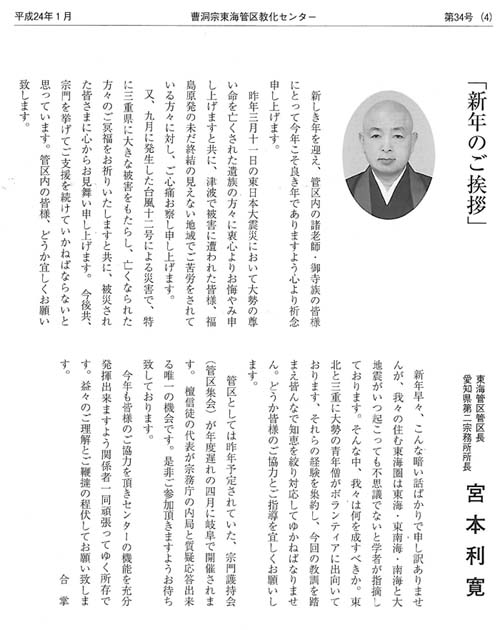 平成24年1月
曹洞宗東海管区教化センター
第34号 (4)
「新年のご挨拶」
東海管区管区長
愛知県第二宗務所所長
宮本利寛
新しき年を迎え、管区内の諸老師・御寺族の皆様
にとって今年こそ良き年でありますよう心より祈念
申し上げます。
昨年三月十一日の東日本大震災において大勢の尊
い命を亡くされた遺族の方々に衷心よりお悔やみ申
し上げますと共に、津波で被害に遭われた皆様、福
島原発の未だ終結の見えない地域でご苦労をされて
いる方々に対し、ご心痛お察し申し上げます。
又、九月に発生した台風十二号による災害で、特
に三重県に大きな被害をもたらし、亡くなられた
方々のご冥福をお祈りいたしますと共に、被災され
た皆さまに心からお見舞い申し上げます。今後共、
宗門を挙げてご支援を続けていかねばならないと
思っています。管区内の皆様、どうか宜しくお願い
致します。
新年早々、こんな暗い話ばかりで申し訳ありませ
んが、我々の住む東海圏は東海・東南海・南海と大
地震がいつ起こっても不思議でないと学者が指摘し
ております。そんな中、我々は何を成すべきか。東
北と三重に大勢の青年僧がボランティアに出向いて
おります、それらの経験を集約し、今回の教訓を踏
まえ皆んなで知恵を絞り対応してゆかねばなりませ
ん。どうか皆様のご協力とご指導を宜しくお願いし
ます。
管区としては昨年予定されていた、宗門護持会
(管区集会)が年度遅れの四月に岐阜で開催されま
す。檀信徒の代表が宗務庁の内局と質疑応答出来
る唯一の機会です。是非ご参加頂きますようお待ち
致しております。
今年も皆様のご協力を頂きセンターの機能を充分
発揮出来ますよう関係者一同頑張ってゆく所存で
す。益々のご理解とご鞭撻の程伏してお願い致しま
す。
合掌